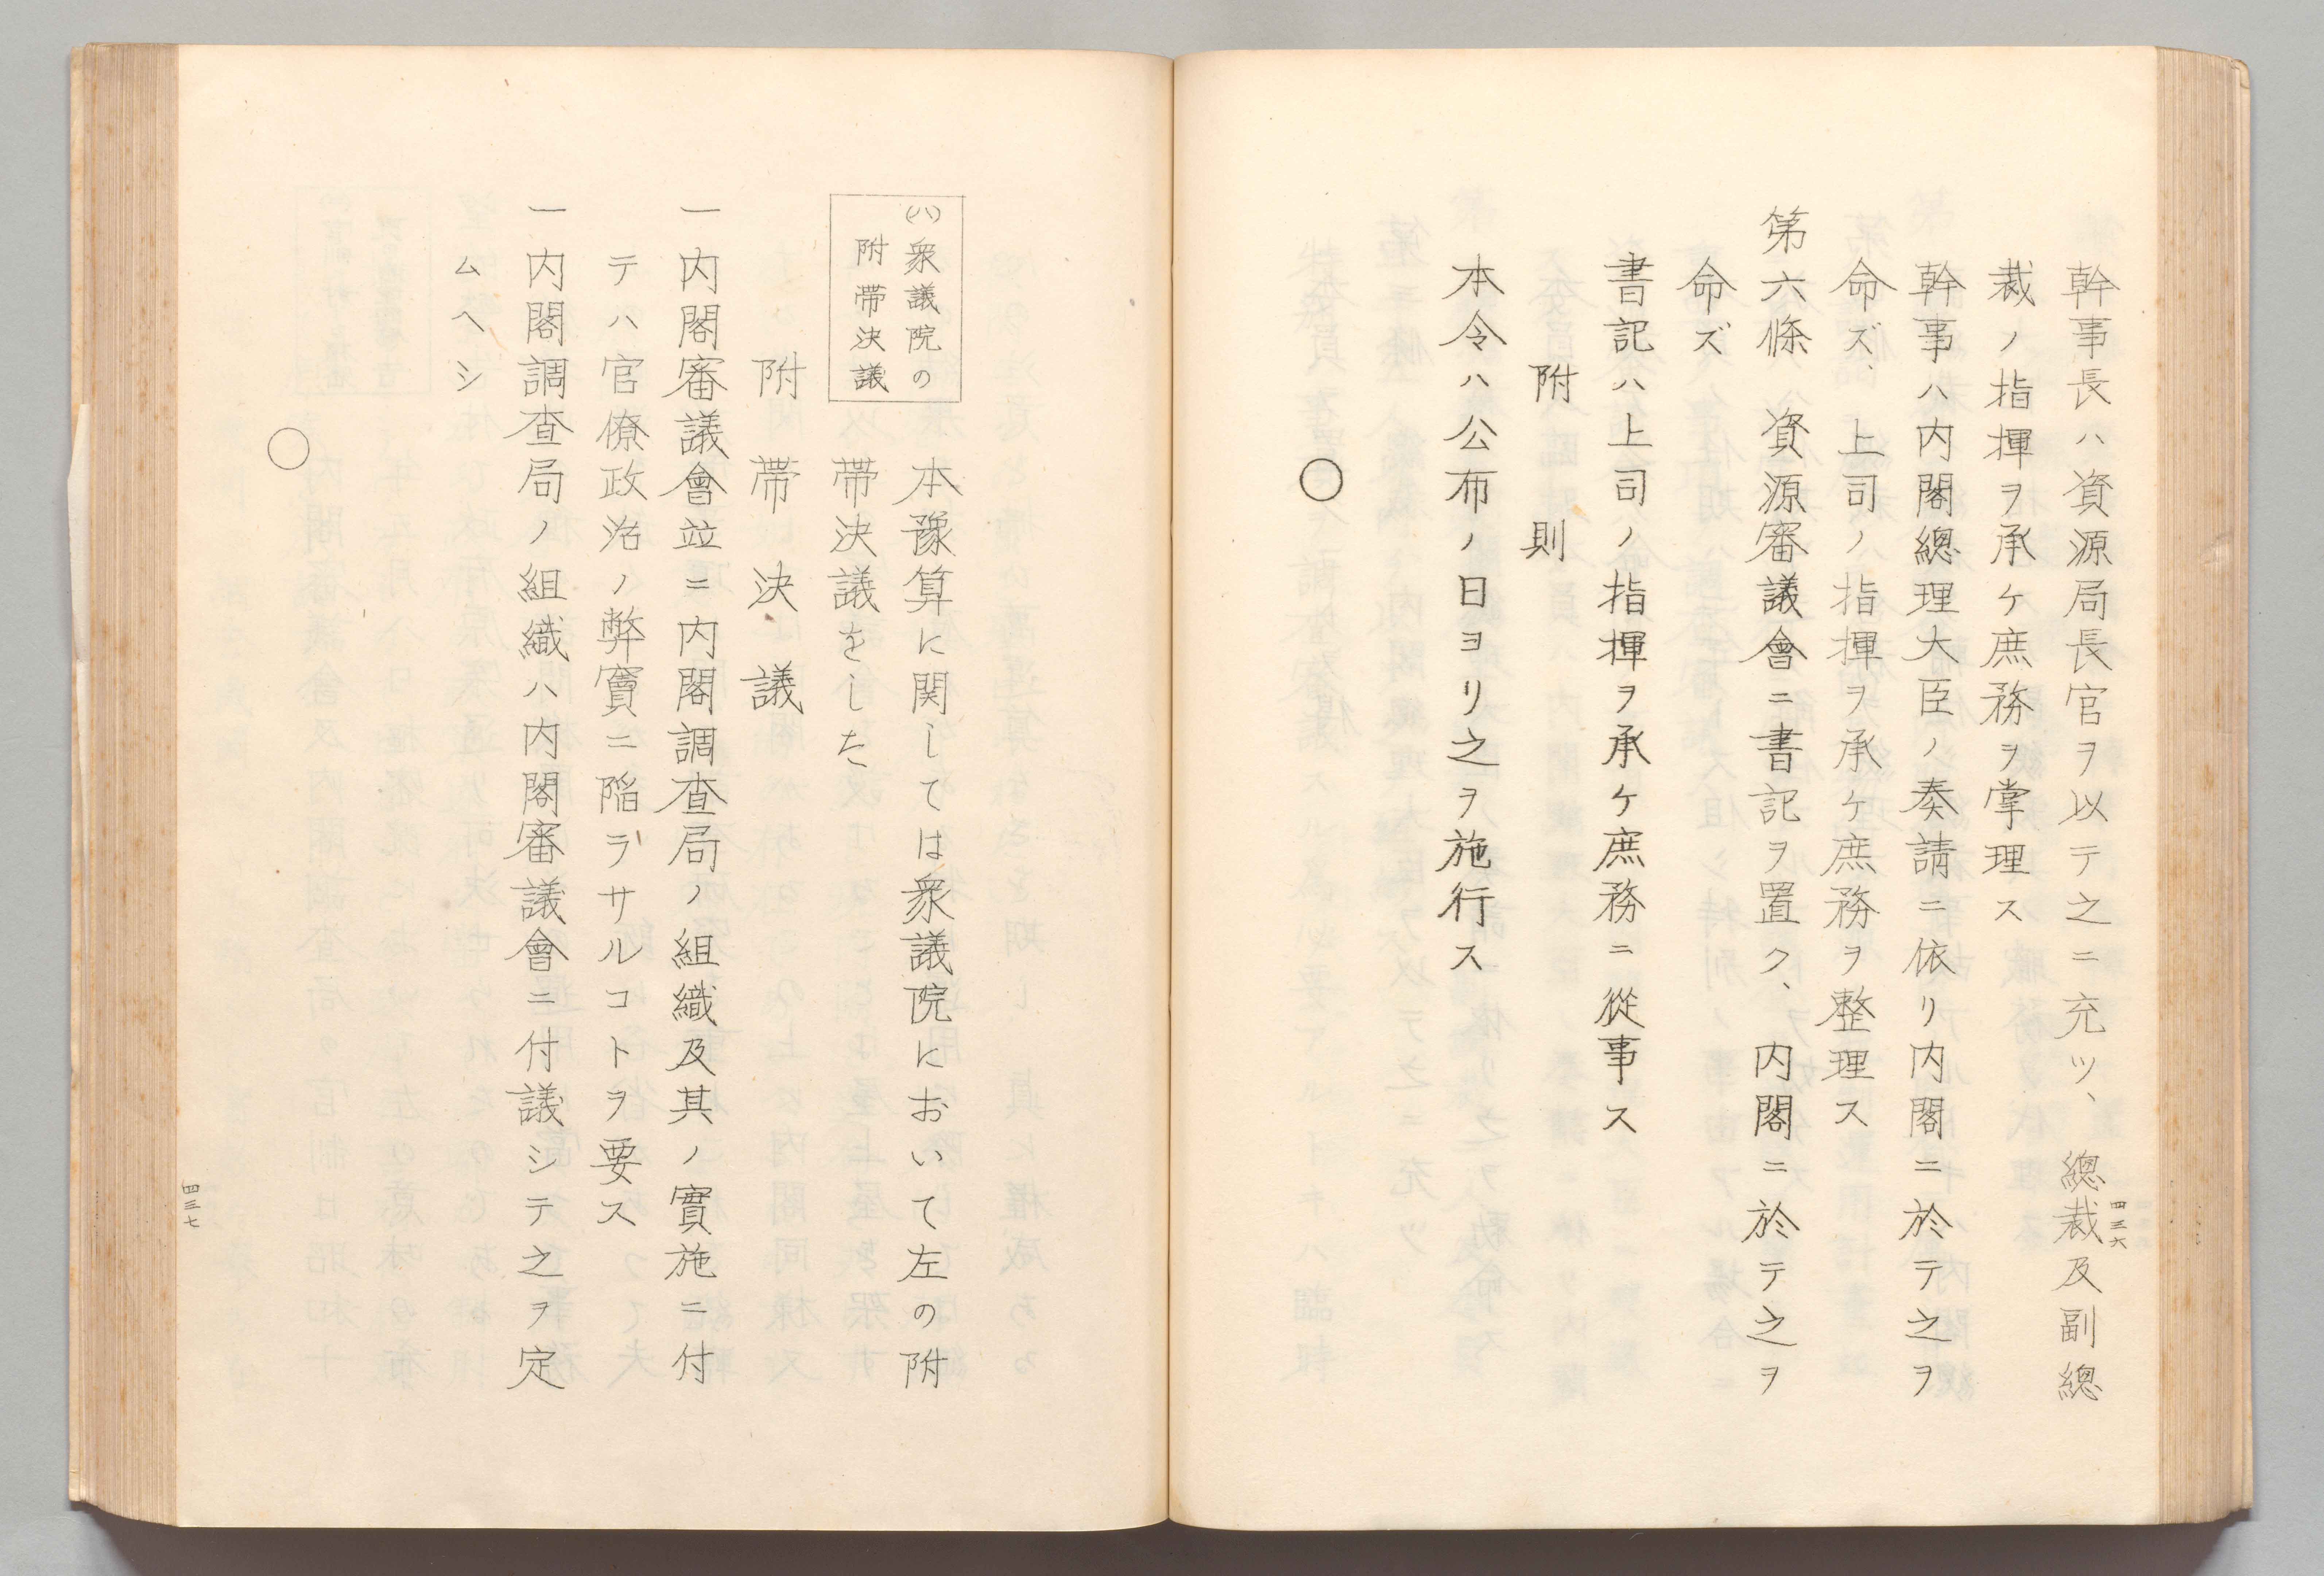 幹事長ハ資源局長官ヲ以テ之ニ充ツ、總裁及副總
裁ノ指揮ヲ承ケ庶務ヲ掌理ス
幹事ハ内閣總理大臣ノ奏請ニ依リ内閣ニ於テ之ヲ
命ズ、上司ノ指揮ヲ承ケ庶務ヲ整理ス
第六條　資源審議會ニ書記ヲ置ク、内閣ニ於テ之ヲ
命ズ
書記ハ上司ノ指揮ヲ承ケ庶務ニ從事ス
附　則
本令ハ公布ノ日ヨリ之ヲ施行ス
○
四三六
(ハ)衆議院の
附帶決議
本豫算に関しては衆議院において左の附
帶決議をした
附帶決議
一内閣審議會竝ニ内閣調査局ノ組織及其ノ實施ニ付
テハ官僚政治ノ弊竇ニ陥ラサルコトヲ要ス
一内閣調査局ノ組織ハ内閣審議會ニ付議シテ之ヲ定
ムヘシ
○
四三七